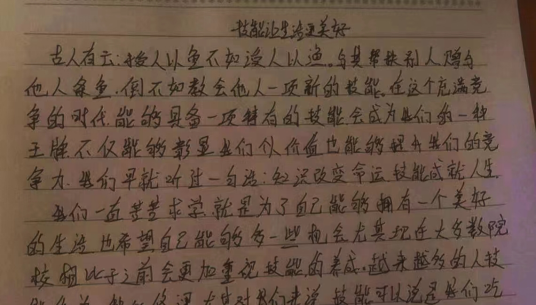 技能让生活更美好
古人有云:授人以鱼不如授人以渔。与其帮扶别人赠与
他人条鱼,倒不如教会他人一项新的技能。在这个充满竞
争的时代能够具备一项特有的技能会成为我们的一种
王牌不仅能够彰显我们价值也能够提升我们的竞
争力。我们早就听过一句话:知识改变命运技能成就人生
我们一直苦苦求学就是为了自己能够拥有一个美好
的生活也希望自己能够多一些机会尤其现在大多数院
校相比于之前会更加重视技能的养成。越来越多的人技
能 我们来说 技能可以说是我们吃